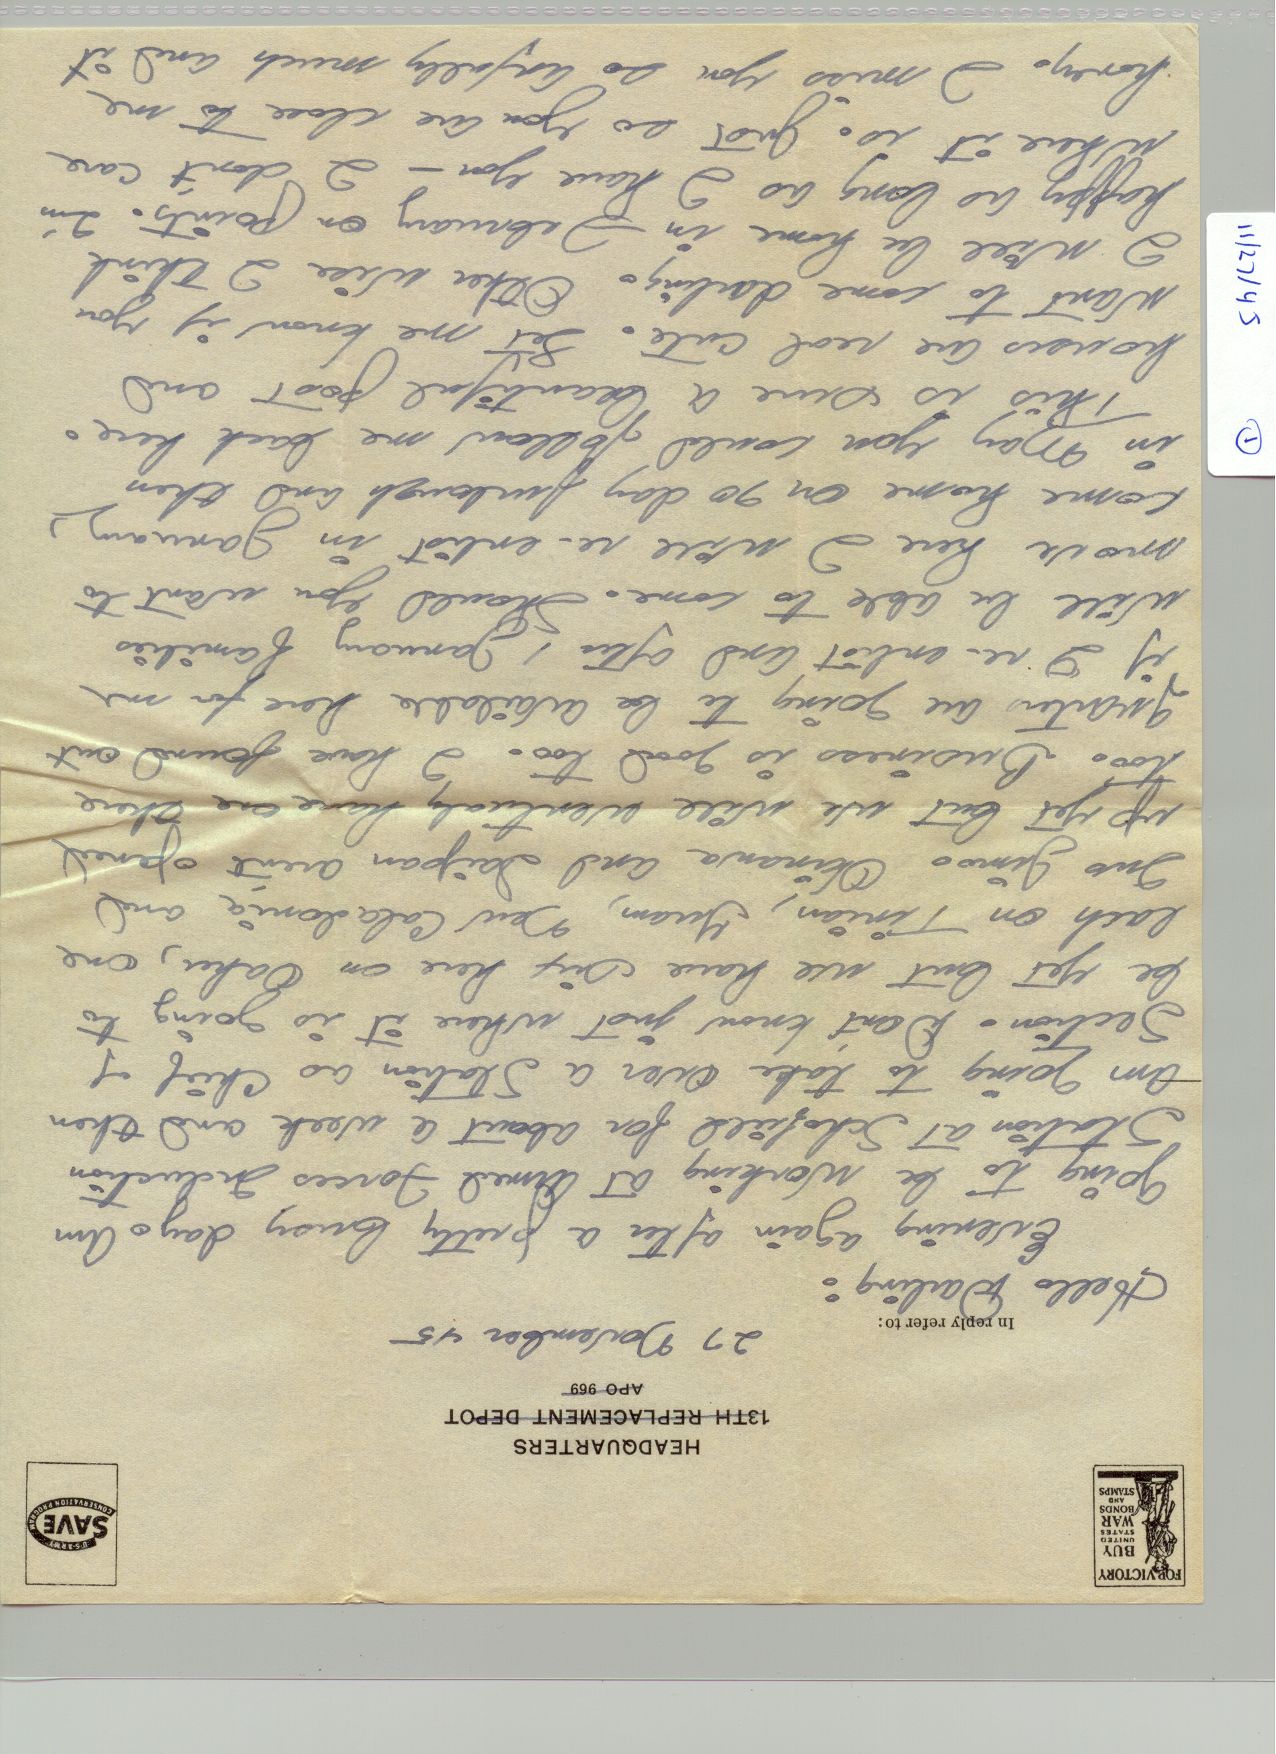 FOR VICTORY
BUY
UNITED
STATES
WAR
BONDS
AND
STAMPS
U·S·ARMY
SAVE
CONSERVATION PROGRAM
HEADQUARTERS
13TH REPLACEMENT DEPOT
APO 969
27 November 45
In reply refer to:
Hello Darling:
Evening again after a pretty busy day. Am
going to be working at Armed Forces Induction
Station at Schofield for about a week and then
am going to take over a Station as Chief of
Section. Don't know just where it is going to
be yet but we have six here on Oahu, one
each on Tinian, Guam, New Caladonia, and
Iwo Jima. Okinawa and Saipan aren't opened
up yet but we will eventualy have one there
too. Business is good too. I have found out
quarters are going to be available here for me
if I re-enlist and after 1 January families
will be able to come. Should you want to
move here I will re-enlist in January,
come home on 90 day furlough and then
in May you could follow me back here.
This is sure a beautiful post and
houses are real cute. Let me know if you
want to come darling. Other wise I think
I will be home in February on points. I'm
happy as long as I have you – I don't care
where it is. Just so you are close to me
honey. I miss you so awfully much and it
11/27/45
1